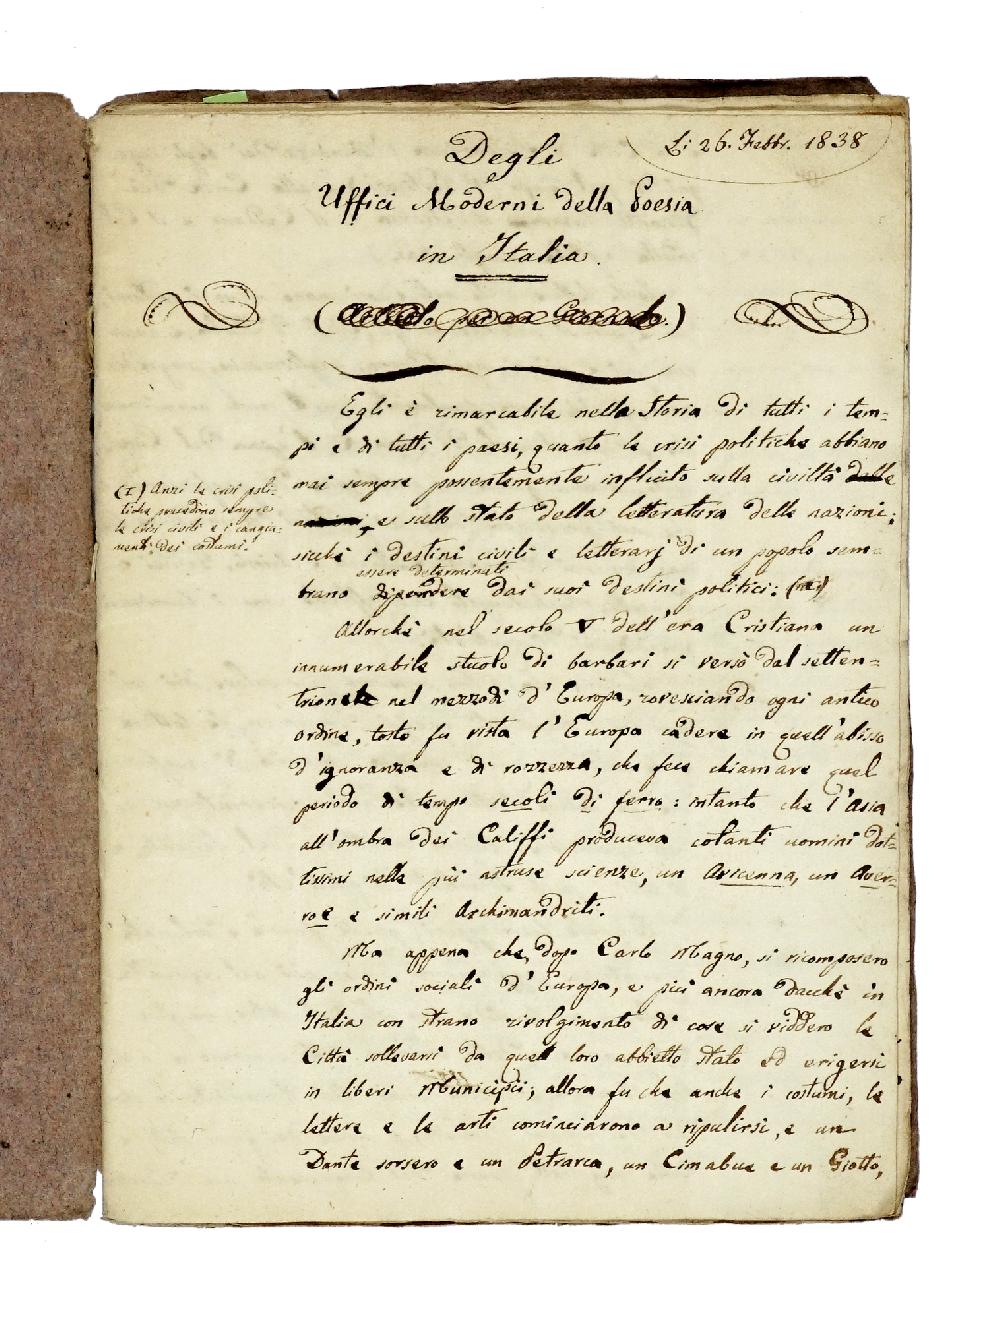 Li 26. Febbr. 1838
Degli
Uffici Moderni della Poesia
in Italia.
Egli è rimarcabile nella Storia di tutti i tem=
pi e di tutti i paesi, quanto le crisi politiche abbiano
mai sempre possentemente influito sulla civiltà delle
nazioni, e sullo stato della letteratura delle nazioni;
sicchè i destini civili e letterarj di un popolo sem=
essere determinati
brano dipendere dai suoi destini politici:
(1) Anzi le crisi poli-
tiche precedono sempre
le crisi civili e i cangia-
menti dei costumi.
Allorchè nel secolo V dell'era Cristiana un
innumerabile stuolo di barbari si versò dal setten=
trione nel mezzodì d'Europa, rovesciando ogni antico
ordine, tosto fu vista l'Europa cadere in quell'abisso
d'ignoranza e di rozzezza, che fece chiamare quel
periodo di tempo secoli di ferro: intanto che l'Asia
all'ombra dei Califfi produceva cotanti uomini dot=
tissimi nelle più astruse scienze, un Avicenna, un Aver=
roe e simili Archimandriti.
Ma appena che, dopo Carlo Magno, si ricomposero
gli ordini sociali d'Europa, e più ancora dacchè in
Italia con strano rivolgimento di cose si viddero le
Città sollevarsi da quell loro abbietto stato ed erigersi
in liberi Municipii; allora fu che anche i costumi, le
lettere e le arti cominciarono a ripulirsi, e un
Dante sorsero e un Petrarca, un Cimabue e un Giotto,